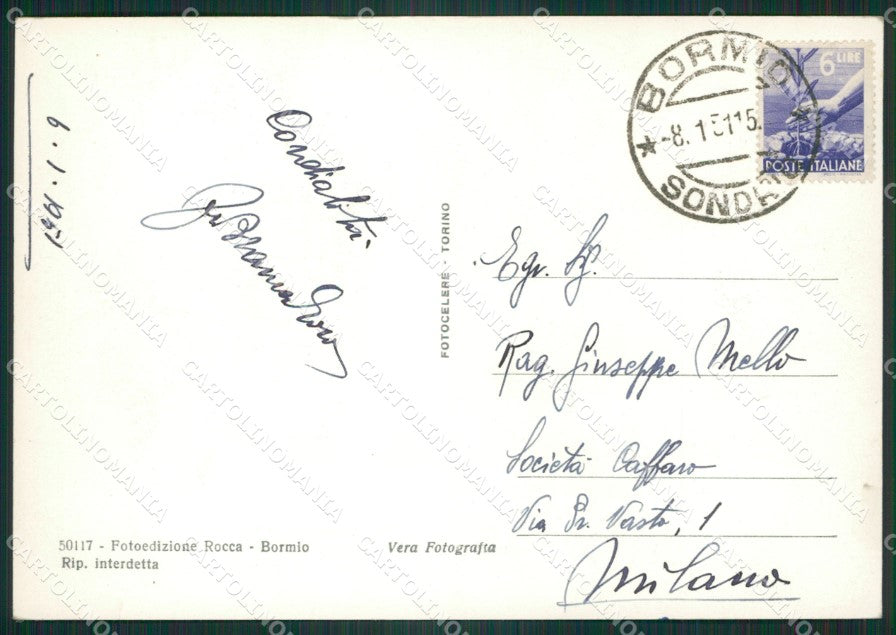 6.1.1951
Cordialità
BORMIO
-8.1.51 15.
SONDRIO
6 LIRE
POSTE ITALIANE
FOTOCELERE - TORINO
Egr. Sig.
Rag. Giuseppe Mello
Società Caffaro
Via Pr. Vasto, 1
Milano
50117 - Fotoedizione Rocca - Bormio
Rip. interdetta
Vera Fotografia
CARTOLINOMANIA